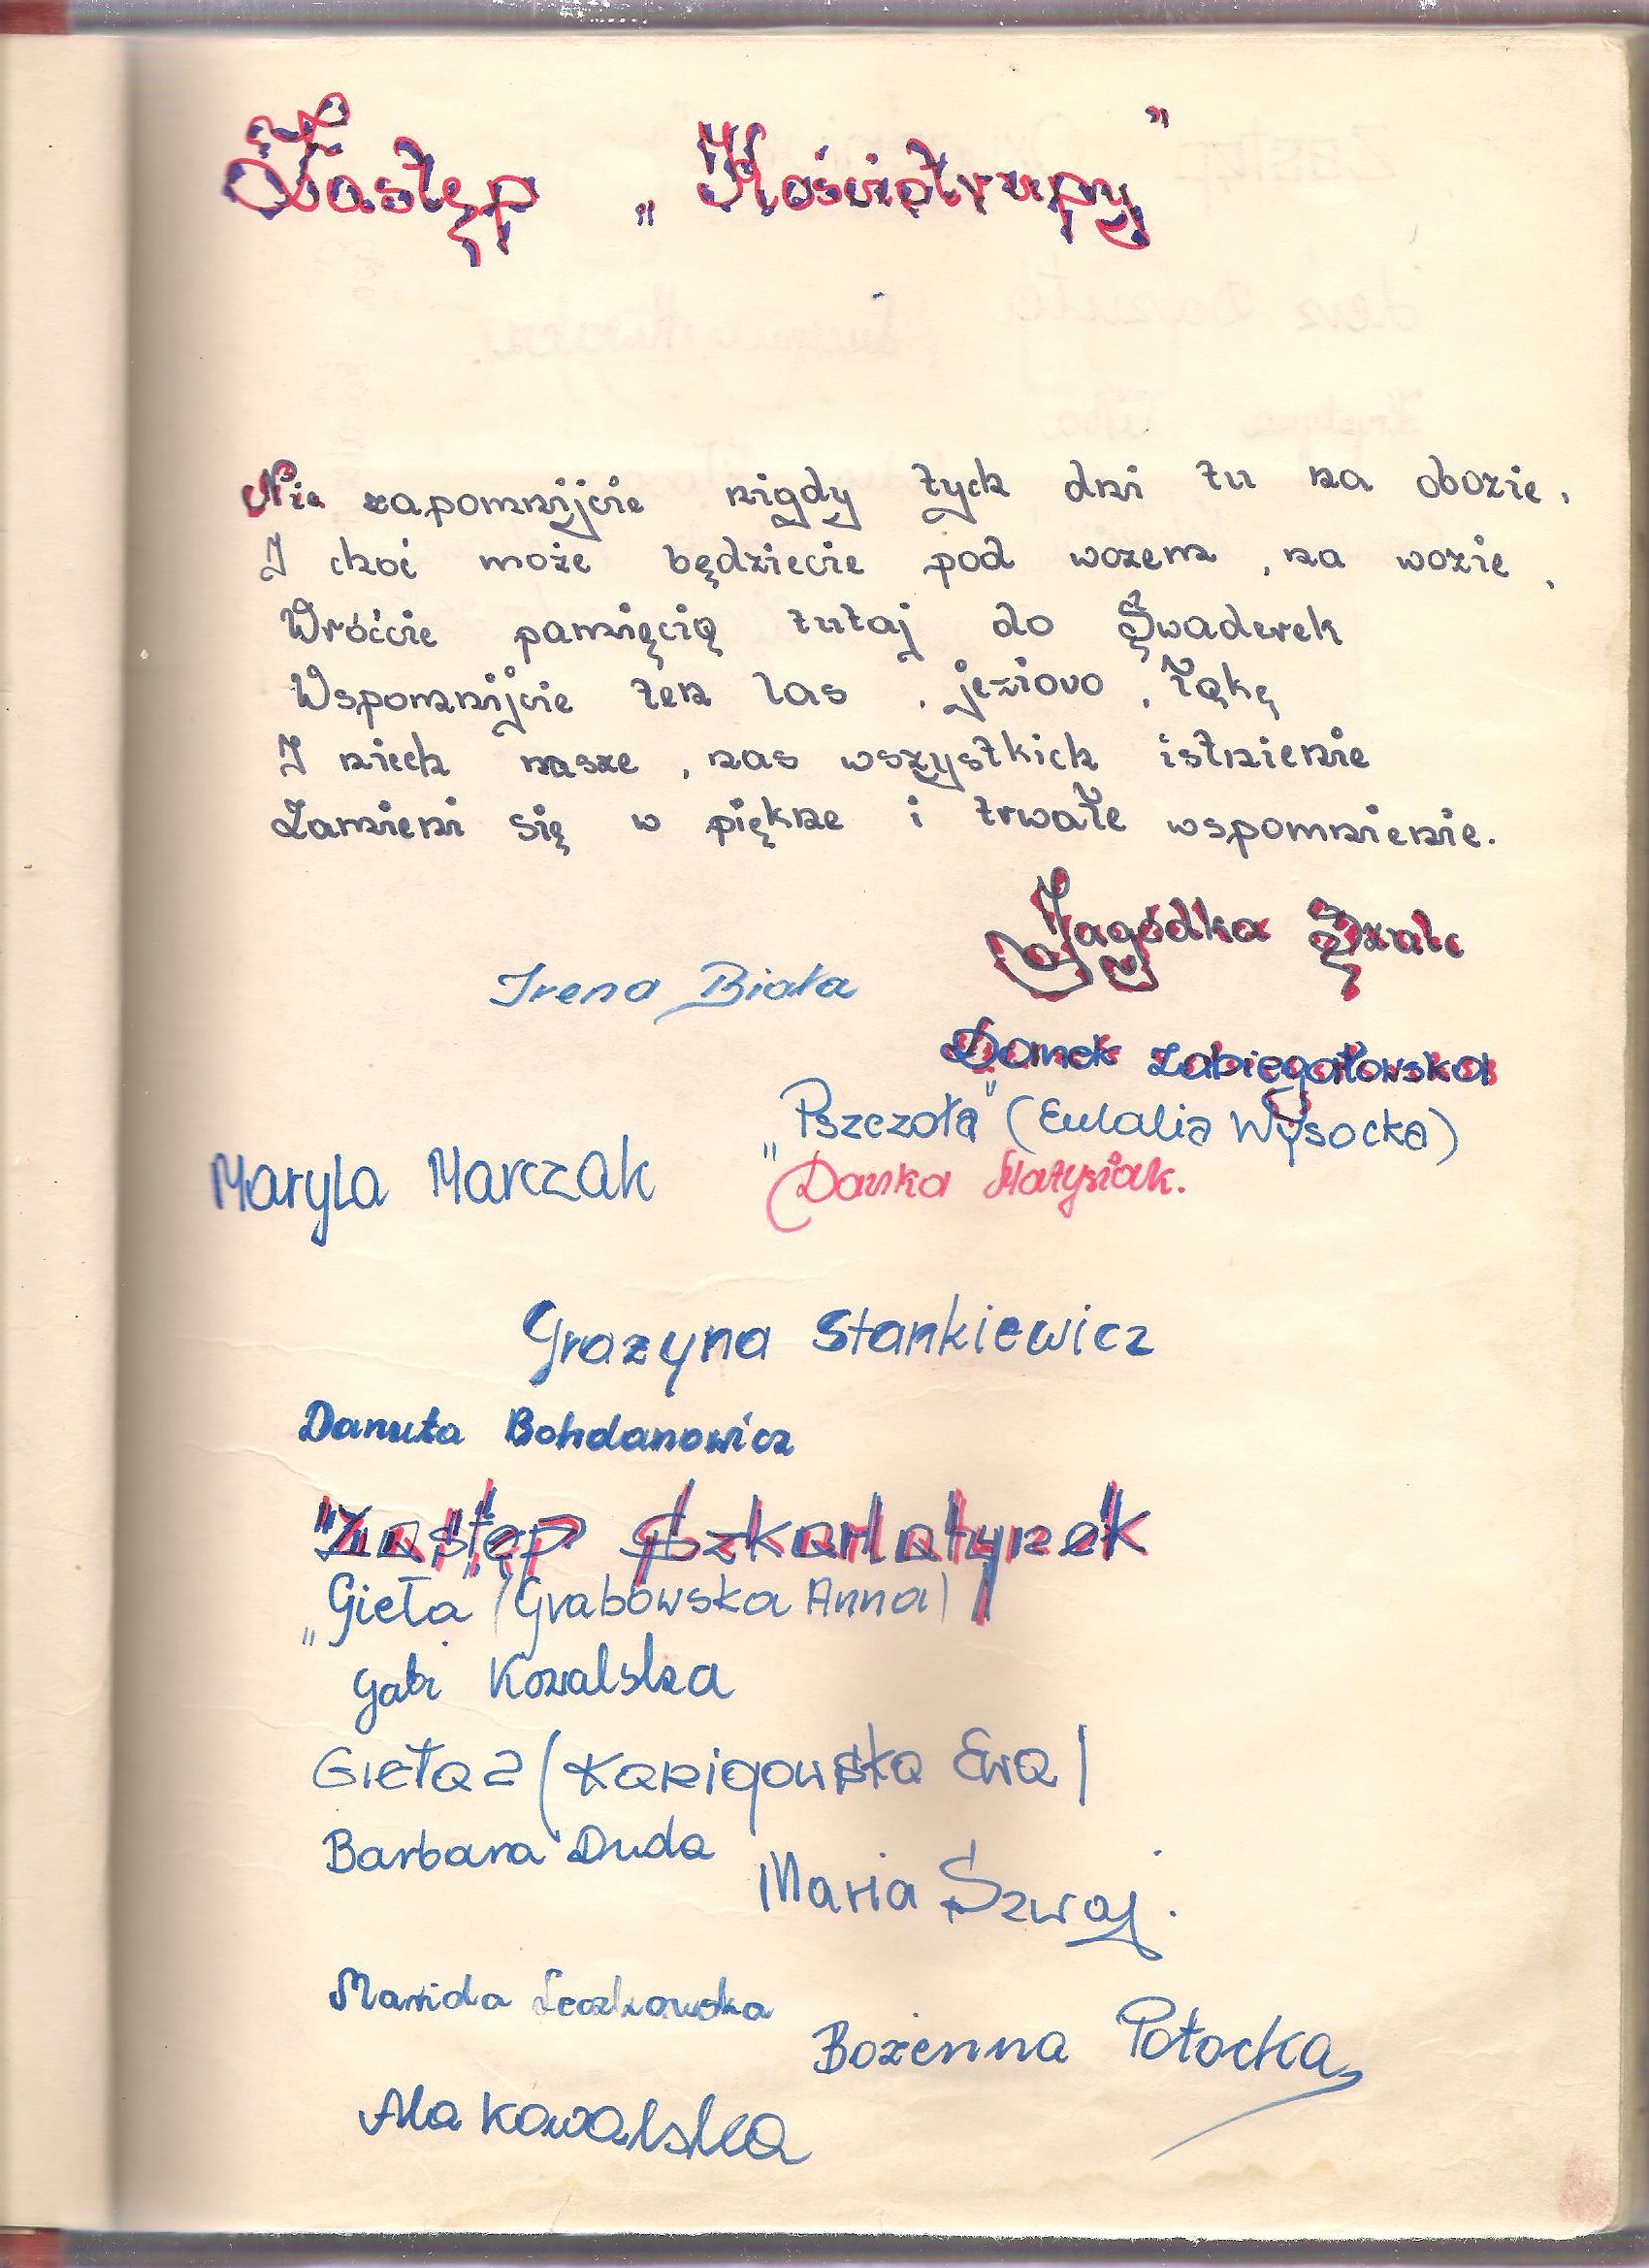 Zastęp „Kościotrupy"
Nie zapomnijcie nigdy tych dni tu na obozie,
I choć może będziecie pod wozem, na wozie,
Wróćcie pamięcią tutaj do Swaderek
Wspomnijcie ten las, jezioro, łąkę
I niech nasze, nas wszystkich istnienie
Zamieni się w piękne i trwałe wspomnienie.
Jagódka Szulc
Irena Biała
Danek Zabiegałowska
„Pszczoła" (Eulalia Wysocka)
Maryla Marczak
Danka Matysiak.
Grażyna Stankiewicz
Danuta Bohdanowicz
"Zastęp Szkarlatynek"
„Gieta" (Grabowska Anna)
Gabi Kowalska
Gieta 2 (Kanigowska Ewa)
Barbara Duda
Maria Szwaj.
Bożenna Potocka
Ala Kowalska